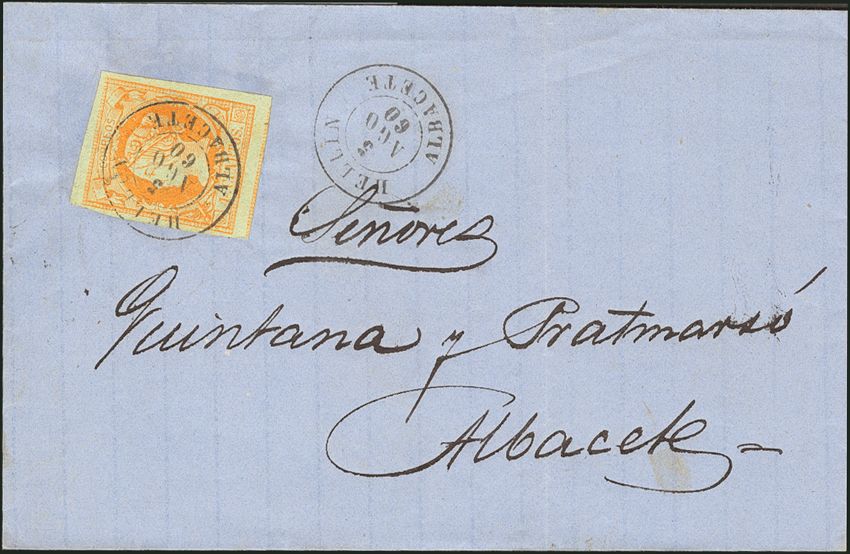 HELLIN
5
AGO
60
ALBACETE
HELLIN
5
AGO
60
ALBACETE
Señores
Quintana y Pratmarsó
Albacete